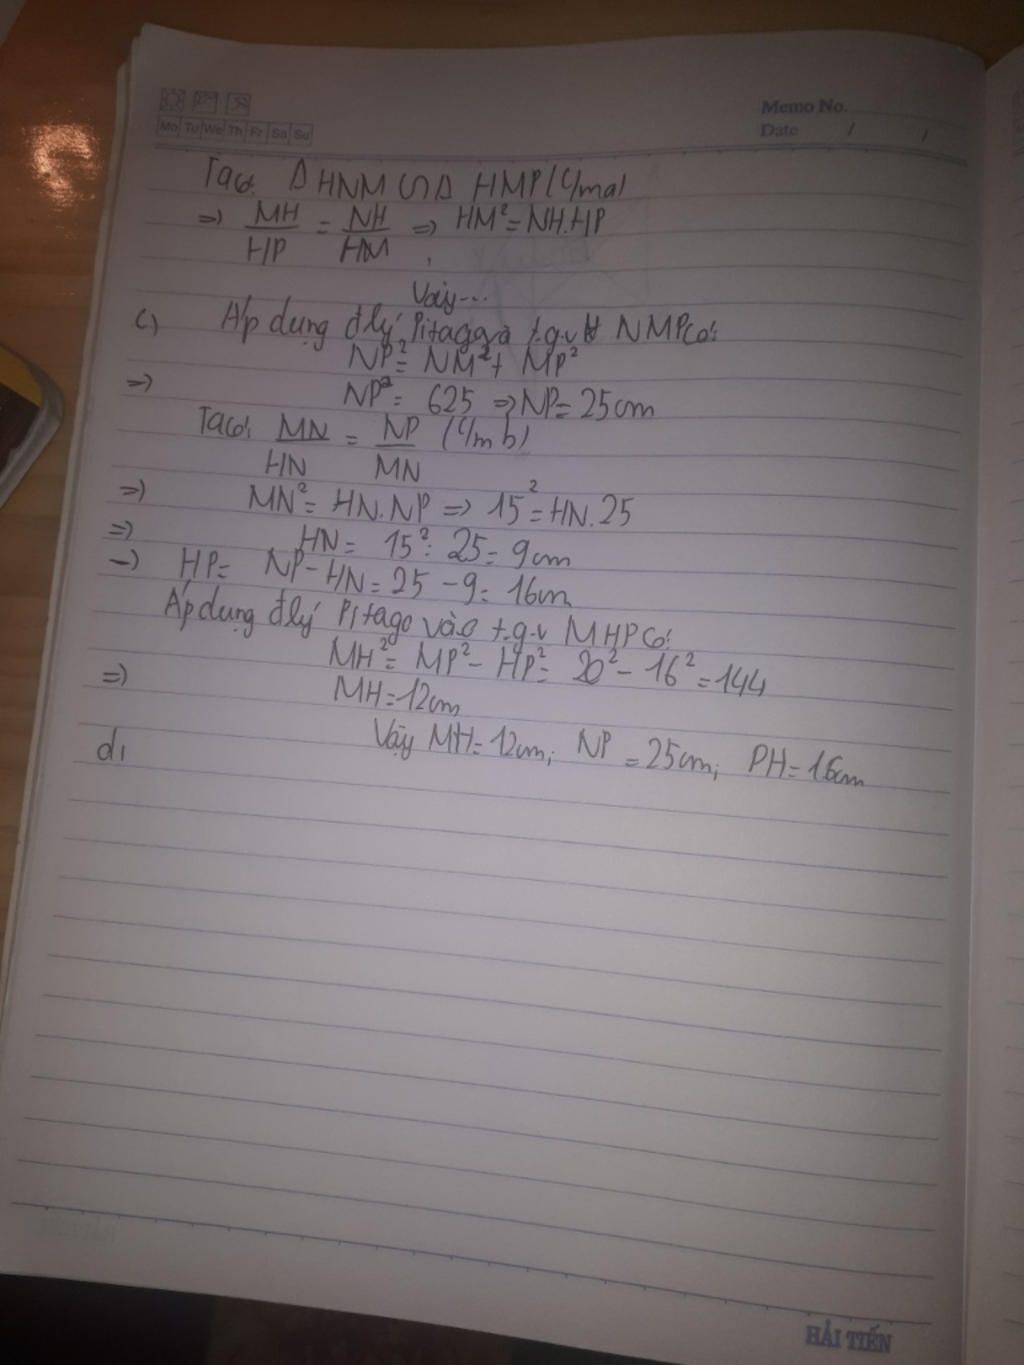 Memo No.
Mo Tu We Th Fr Sa Su
Date / /
Ta có: Δ HNM ∽ Δ HMP (c/m a)
=> MH/HP = NH/HM => HM² = NH.HP
Vậy...
c) Áp dụng đ lý Pitago t.g.v NMP có:
NP² = NM² + MP²
=> NP² = 625 => NP = 25cm
Ta có: MN/HN = NP/MN (c/m b)
=> MN² = HN.NP => 15² = HN.25
=> HN = 15² : 25 = 9cm
-) HP = NP - HN = 25 - 9 = 16cm
Áp dụng đ lý Pitago vào t.g.v MHP có:
MH² = MP² - HP² = 20² - 16² = 144
=> MH = 12cm
Vậy MH = 12cm; NP = 25cm; PH = 16cm
d,
HẢI TIẾN